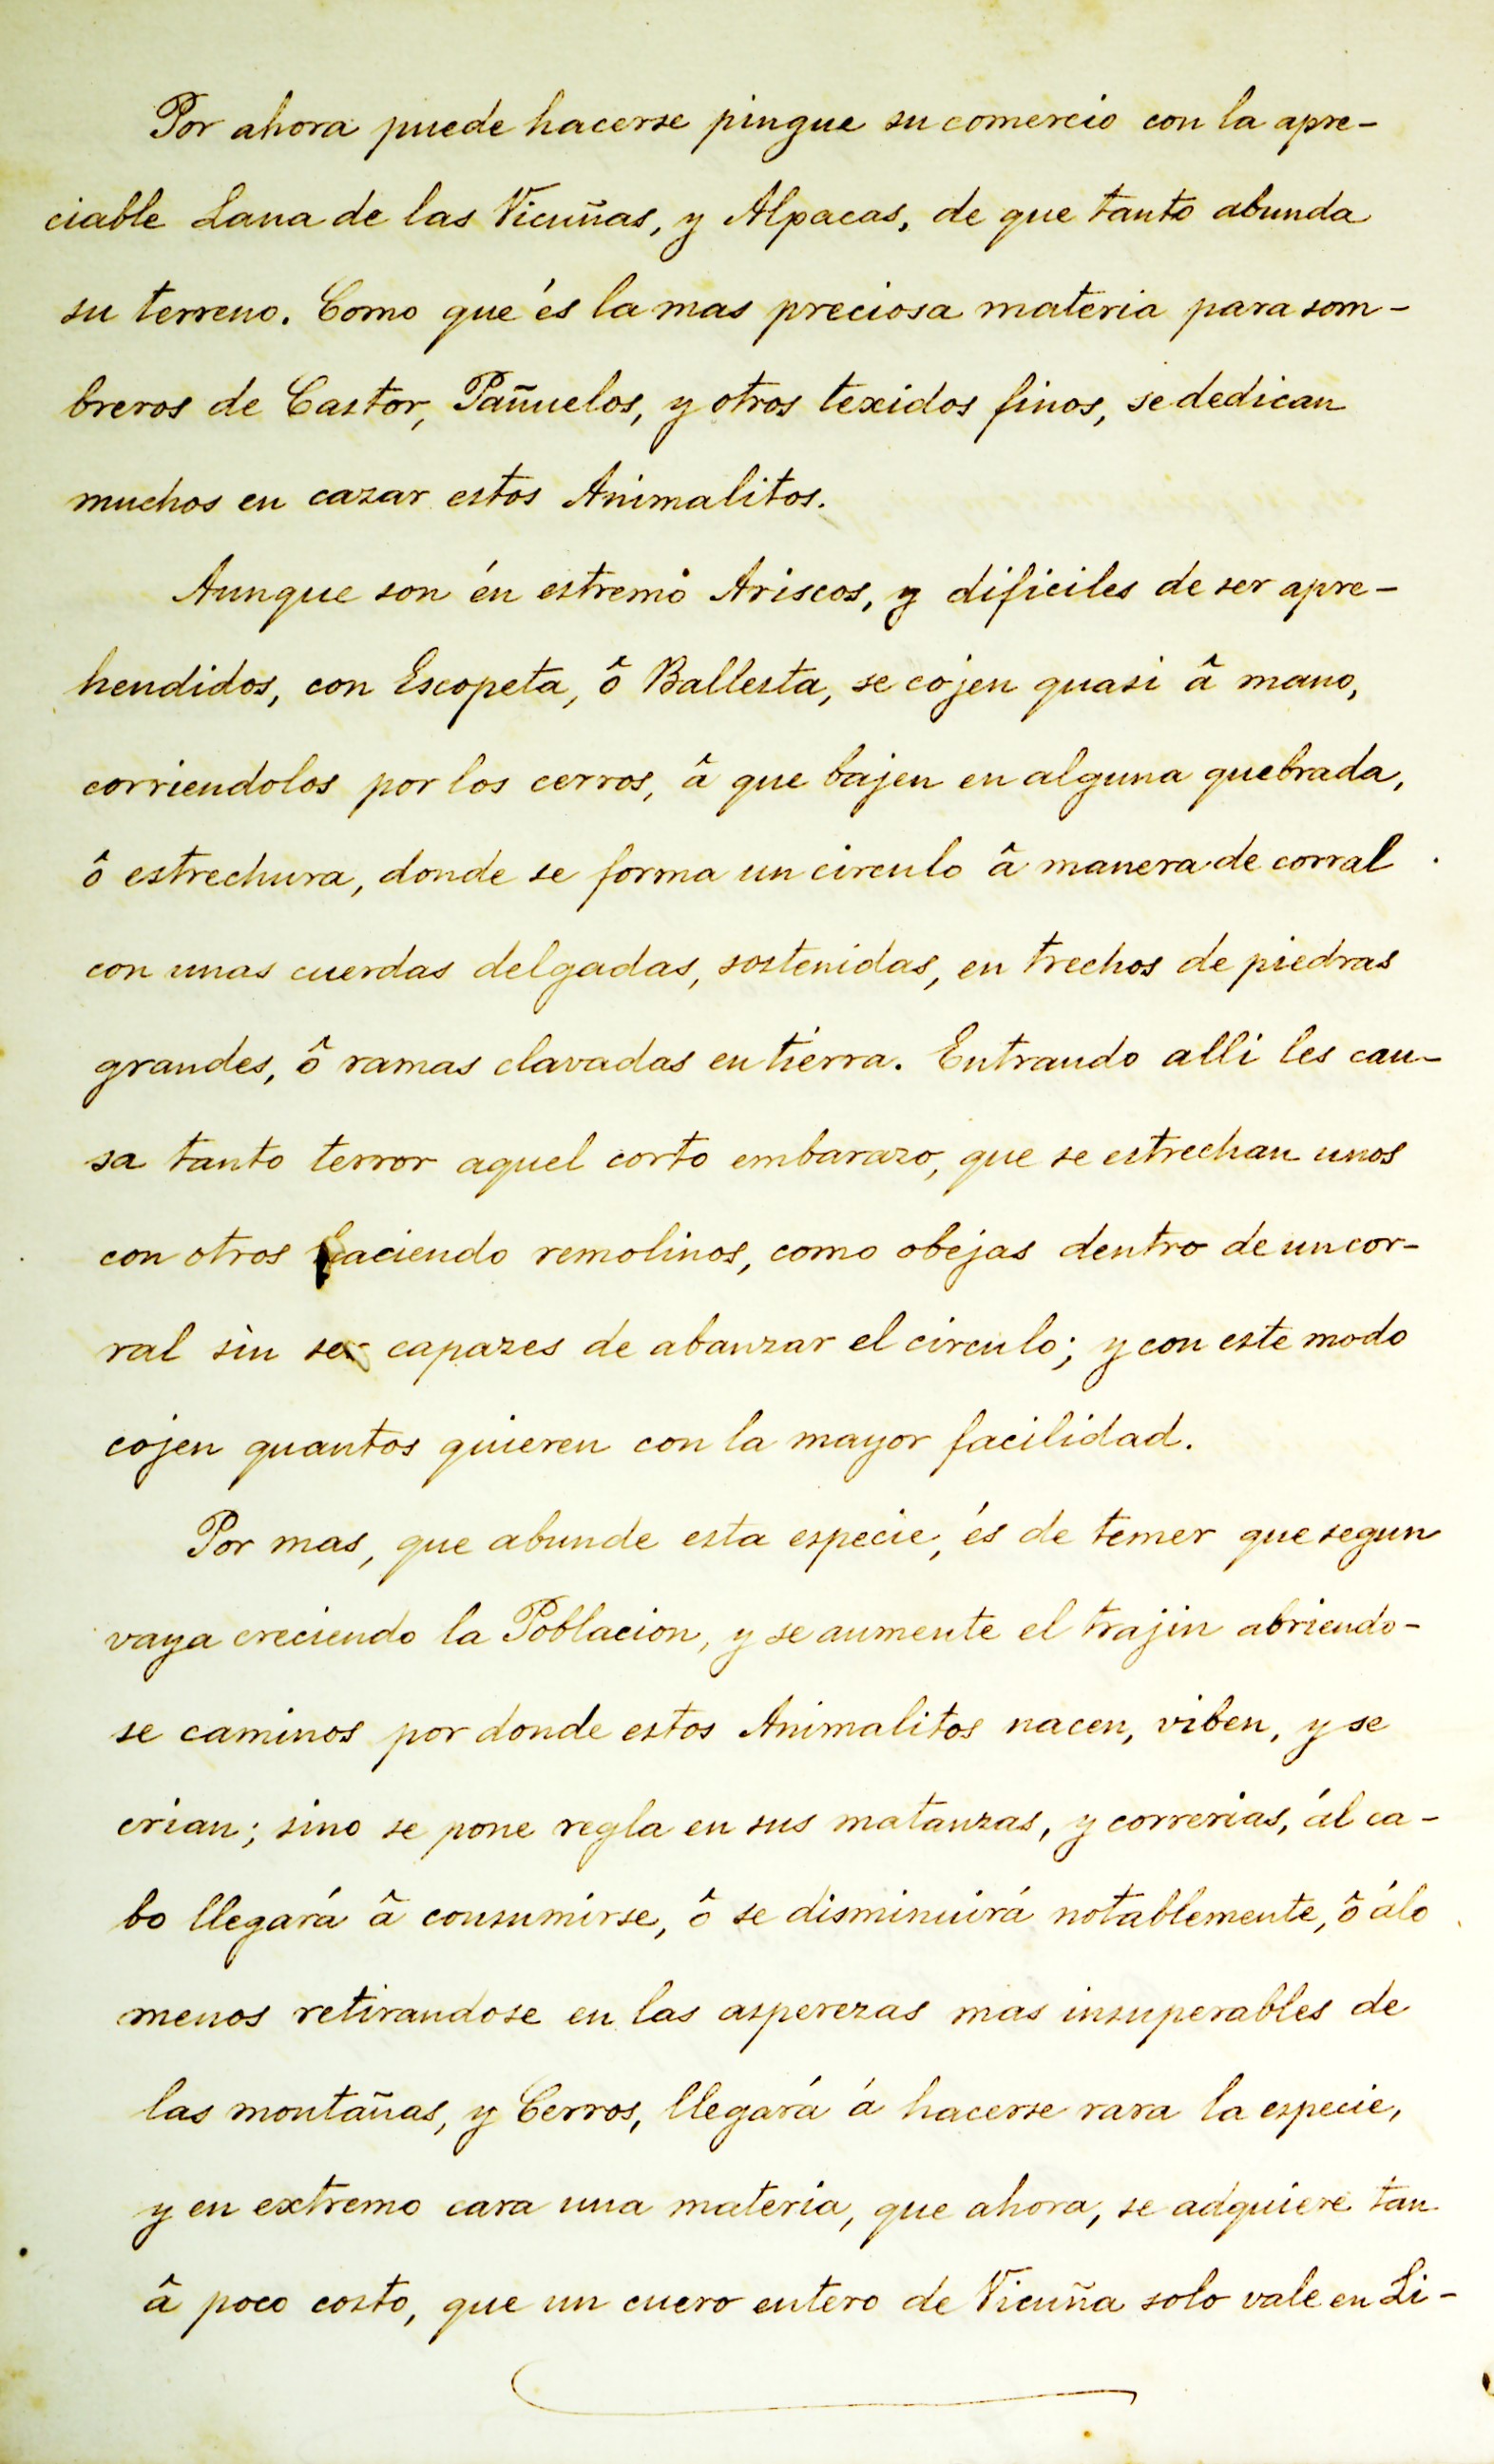 Por ahora puede hacerse pingue su comercio con la apre-
ciable Lana de las Vicuñas, y Alpacas, de que tanto abunda
su terreno. Como que és la mas preciosa materia para som-
breros de Castor, Pañuelos, y otros texidos finos, se dedican
muchos en cazar estos Animalitos.
Aunque son én estremo Ariscos, y dificiles de ser apre-
hendidos, con Escopeta, ô Ballesta, se cojen quasi â mano,
corriendolos por los cerros, â que bajen en alguna quebrada,
ô estrechura, donde se forma un circulo â manera de corral
con unas cuerdas delgadas, sostenidas, en trechos de piedras
grandes, ô ramas clavadas en tierra. Entrando alli les cau-
sa tanto terror aquel corto embarazo, que se estrechan unos
con otros haciendo remolinos, como obejas dentro de un cor-
ral sin ser capazes de abanzar el circulo; y con este modo
cojen quantos quieren con la mayor facilidad.
Por mas, que abunde esta especie, és de temer que segun
vaya creciendo la Poblacion, y se aumente el trajin abriendo-
se caminos por donde estos Animalitos nacen, viben, y se
crian; sino se pone regla en sus matanzas, y correrias, ál ca-
bo llegará â consumirse, ô se disminuirá notablemente, ô álo
menos retirandose en las asperezas mas insuperables de
las montañas, y Cerros, llegará á hacerse rara la especie,
y en extremo cara una materia, que ahora, se adquiere tan
â poco costo, que un cuero entero de Vicuña solo vale en Li-